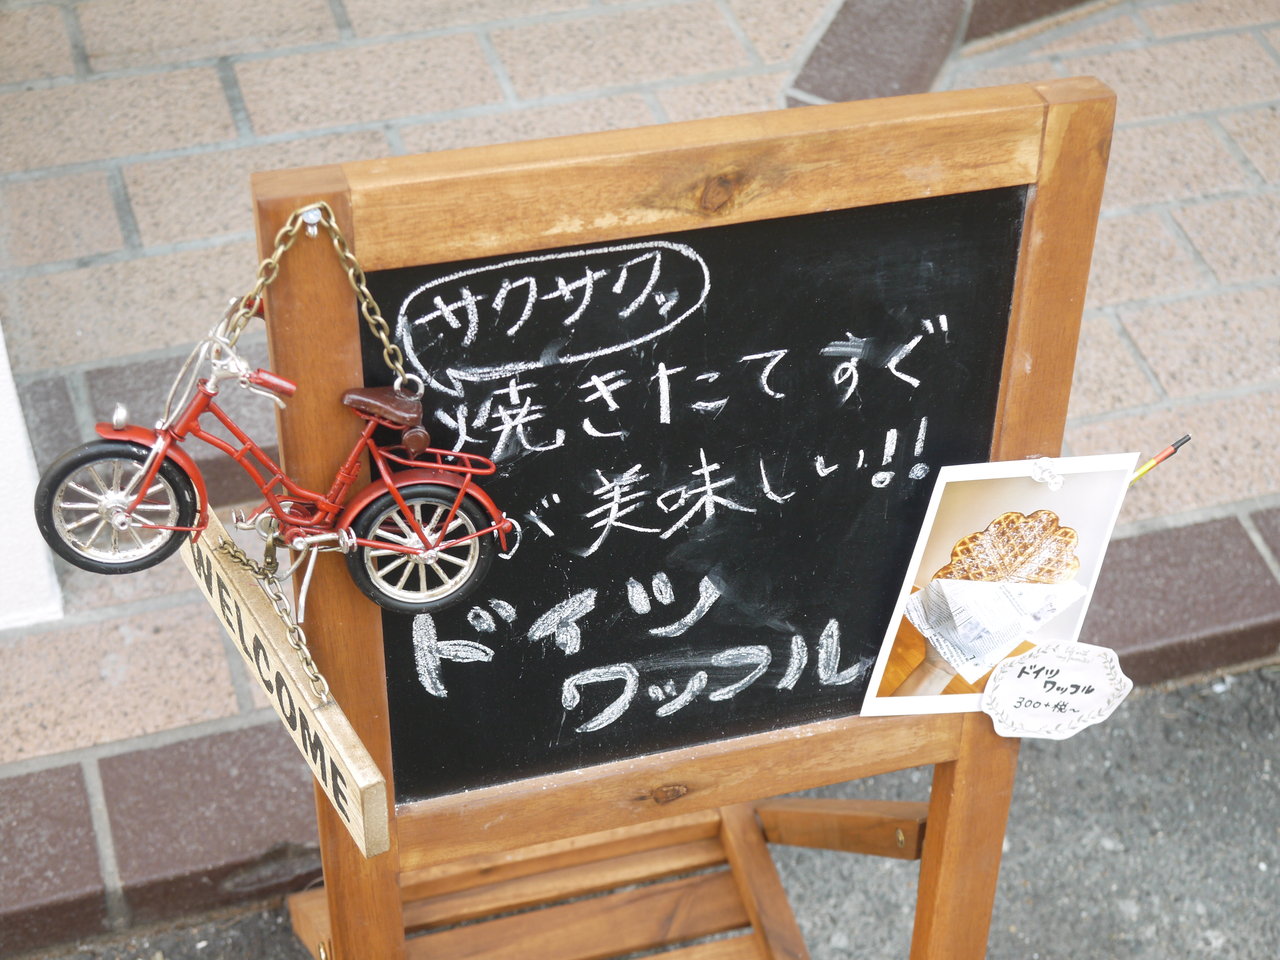 サクサクッ
焼きたてすぐ
が美味しい!!
ドイツ
ワッフル
WELCOME
ドイツ
ワッフル
300+税~